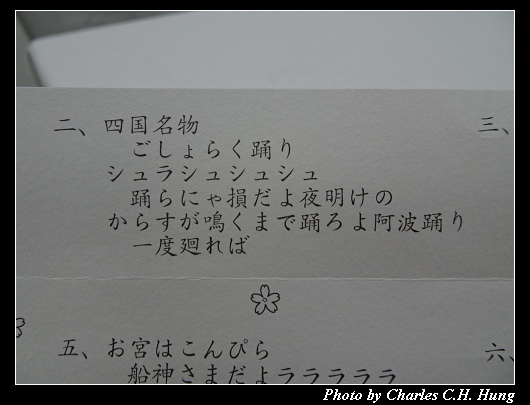 二、四国名物
ごしょらく踊り
シュラシュシュシュ
踊らにゃ損だよ夜明けの
からすが鳴くまで踊ろよ阿波踊り
一度廻れば
三、
五、お宮はこんぴら
船神さまだよラララララ
六、
Photo by Charles C.H. Hung